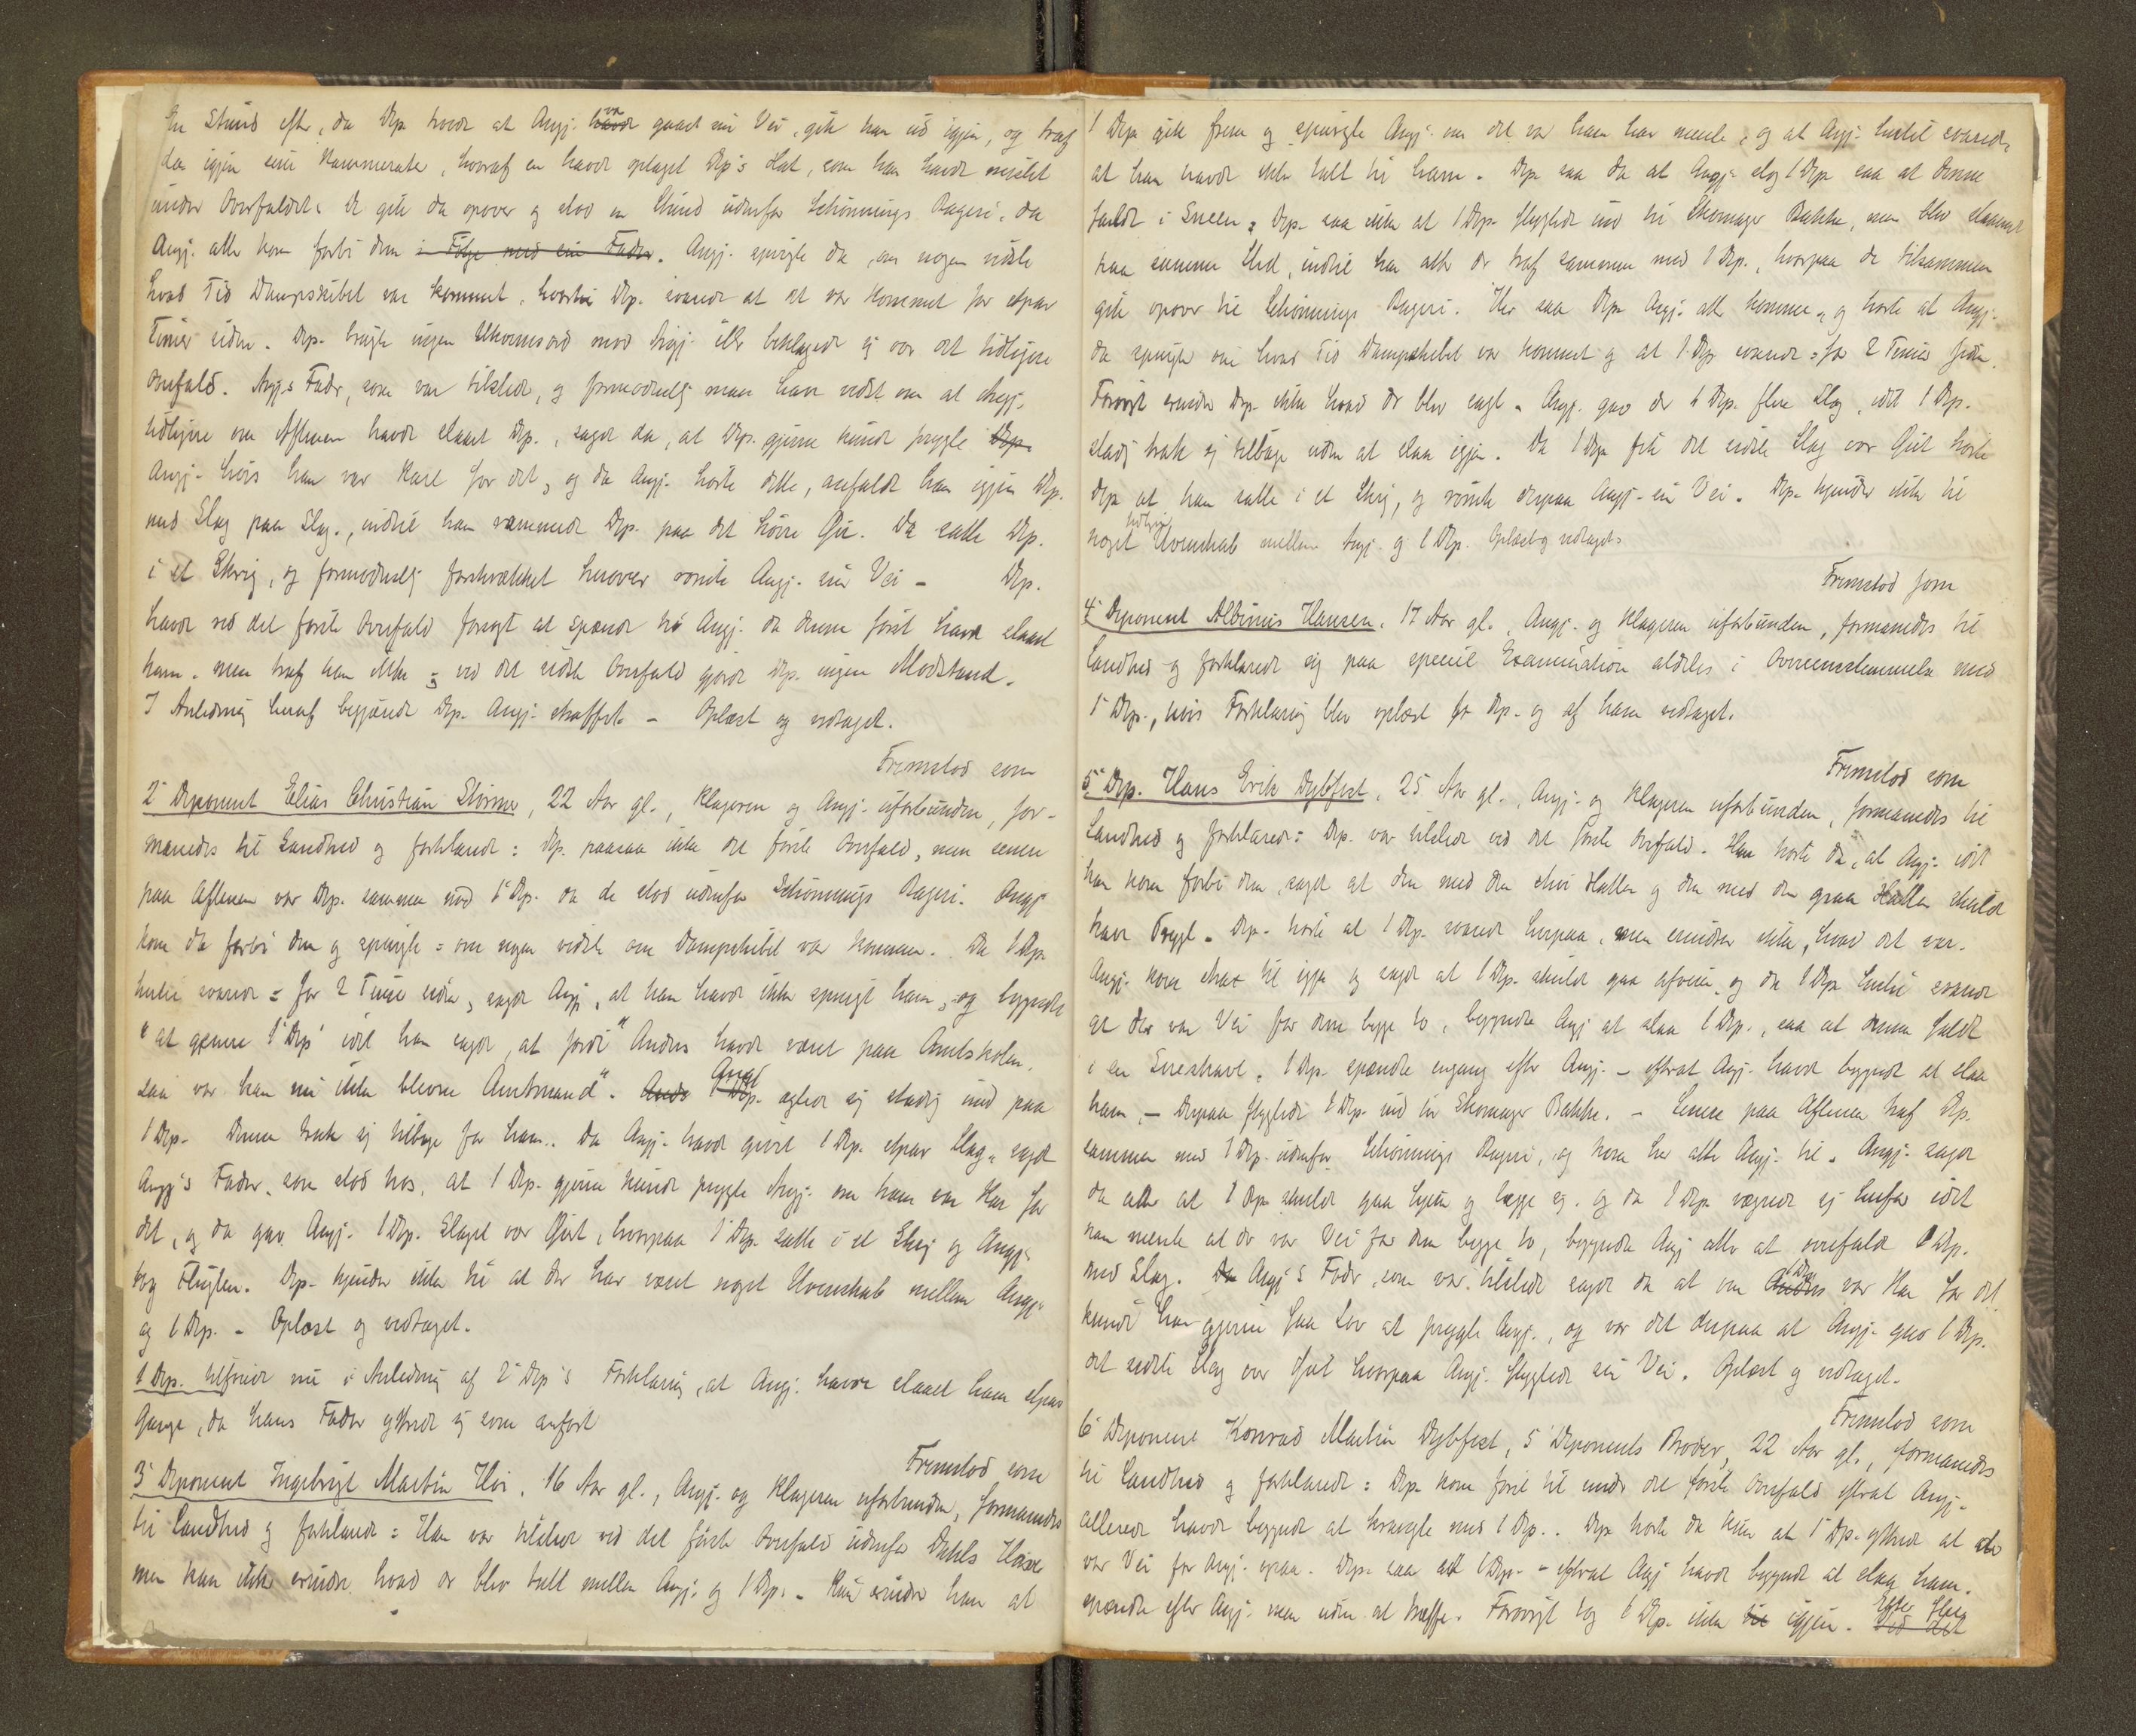 En Stund efter, da Dep. troede at Angj. havde var gaaet sin Vei, gik han ud igjen, og traf
da igjen sine Kammerater, hvoraf en havde optaget Dep's Hat, som han havde mistet
under Overfaldet. De gik da opover og stod en Stund udenfor Schønnings Bageri, da
Angj. atter kom forbi dem i Følge med sin Fader. Angj. spurgte da, om nogen vidste
hvad Tid Dampskibet var kommet, hvortil Dep. svarede at det var kommet for et par
Timer siden. Dep. brugte ingen Ukvemsord mod Angj. eller beklagede sig over det tidligere
Overfald. Angj.s Fader, som var tilstede, og formodentlig maa have vidst om at Angj.
tidligere om Aftenen havde slaaet Dep., sagde da, at Dep. gjerne kunde prygle Dep.
Angj. hvis han var Karl for det, og da Angj. hørte dette, anfaldt han igjen Dep.
med Slag paa Slag, indtil han rammede Dep. paa det høire Øie. Da satte Dep.
i et Skrig, og formodentlig forskrækket herover rømte Angj. sin Vei - Dep.
havde ved det første Overfald forsøgt at spænde til Angj. da denne først havde slaaet
ham, men traf ham ikke; ved det sidste Overfald gjorde Dep. ingen Modstand.
I Anledning heraf begjærede Dep. Angj. straffet. - Oplæst og vedtaget.
Fremstod som
2' Deponent Elias Christian Størmer, 22 Aar gl., Klageren og Angj. uforbunden, for-
manedes til Sandhed og forklarede: Dep. paasaa ikke det første Overfald, men senere
paa Aftenen var Dep. sammen med 1' Dep. da de stod udenfor Schønnings Bageri. Angj
kom da forbi dem og spurgte = om nogen vidste om Dampskibet var kommen. Da 1 Dep.
hertil svarede = for 2 Timer siden, sagde Angj, at han havde ikke spurgt ham, og begyndte
"at gjænne 1' Dep' idet han sagde, at fordi" Anders havde været paa Amtskolen,
saa var han nu ikke bleven Amtmand". Anders 1' Dep. Angj egled sig stadig ind paa
1 Dep. Denne trak sig tilbage for ham. Da Angj. havde givet 1 Dep. et par Slag, sagde
Angj's Fader, som stod hos, at 1 Dep. gjerne kunde prygle Angj. om han var Kar for
det, og da gav Angj. 1 Dep. Slaget over Øiet, hvorpaa 1' Dep. satte i et Skrig og Angj.
tog Flugten. Dep. kjender ikke til at der har været noget Uvenskab mellem Angj.
og 1 Dep. - Oplæst og vedtaget.
1 Dep. tilføiede nu i Anledning af 2' Dep's Forklaring, at Angj. havde slaaet ham et par
Gange, da hans Fader yttrede sig som anført
Fremstod som
3' Deponent Ingebrigt Martin Høi, 16 Aar gl., Angj. og Klageren uforbunden, formanedes
til Sandhed og forklarede: Han var tilstede ved det første Overfald udenfor Dahls
men kan ikke erindre hvad der blev talt mellem Angj. og 1 Dep. - Kun erindrer han at
1 Dep. gik frem og spurgte Angj. om det var ham han mente, og at Angj. hertil svarede,
at han havde ikke talt til ham. Dep. saa da at Angj. slog 1 Dep. saa at denne
faldt i Sneen. Dep. saa ikke at 1 Dep. flygtede ind til Skomager Bakke, men blev staaende
paa samme Sted, indtil han atter der traf sammen med 1 Dep., hvorpaa de tilsammen
gik opover til Schønnings Bageri. Her saa Dep. Angj. atter komme, og hørte at Angj.
da spurgte om hvad Tid Dampskibet var kommet og at 1 Dep. svarede = for 2 Timer siden.
Forøvrigt erindrer Dep. ikke hvad der blev sagt. Angj. gav da 1 Dep. flere Slag, idet 1 Dep.
stadig trak sig tilbage uden at slaa igjen. Da 1 Dep. fik det sidste Slag over Øiet hørte
Dep. at han satte i et Skrig, og rømte derpaa Angj. sin Vei. Dep. kjender ikke til
noget tidligere Uvenskab mellem Angj. og 1 Dep. Oplæst og vedtaget.
Fremstod som
4' Deponent Albinus Hansen, 17 Aar gl., Angj. og Klageren uforbunden, formanedes til
Sandhed og forklarede sig paa speciel Examination aldeles i Overensstemmelse med
1' Dep., hvis Forklaring blev oplæst for Dep. og af ham vedtaget.
Fremstod som
5' Dep. Hans Erik Dybfest, 25 Aar gl., Angj. og Klageren uforbunden, formanedes til
Sandhed og forklarede: Dep. var tilstede ved det første Overfald. Han hørte da, at Angj. idet
han kom forbi dem, sagde at den med den Hatten og den med den graa Hatten skulde
have Prygl. Dep. hørte at 1 Dep. svarede herpaa, men erindrer ikke, hvad det var.
Angj. kom strax til igjen og sagde at 1 Dep. skulde gaa afveien, og da 1 Dep. hertil svarede
at der var Vei for dem begge to, begyndte Angj at slaa 1 Dep., saa at denne faldt
i en Sneskavl. 1 Dep. spændte engang efter Angj. - efterat Angj. havde begyndt at slaa
ham. - Derpaa flygtede 1 Dep. ind til Skomager Bakke. - Senere paa Aftenen traf Dep.
sammen med 1 Dep. udenfor Schønnings Bageri, og kom her atter Angj. til. Angj. sagde
da atter at 1 Dep. skulde gaa hjem og lægge sig, og da 1 Dep. vægrede sig herfor idet
han mente at der var Vei for dem begge to, begyndte Angj atter at overfalde 1 Dep.
med Slag. Da Angj's Fader, som var tilstede sagde da at om Anders 1 Dep. var Kar for det
kunde han gjerne faa Lov at prygle Angj., og var det derpaa at Angj. gav 1 Dep.
det sidste Slag over Øiet hvorpaa Angj. flygtede sin Vei. Oplæst og vedtaget.
Fremstod som
6' Deponent Konrad Martin Dybfest, 5' Deponents Broder, 22 Aar gl., formanedes
til Sandhed og forklarede: Dep. kom først til under det første Overfald efterat Angj.
allerede havde begyndt at krangle med 1 Dep.. Dep. hørte da kun at 1' Dep. yttrede at der
var Vei for Angj. ogsaa. Dep. saa at 1 Dep. - efterat Angj havde begyndt at slaa ham.
spændte efter Angj. men uden at træffe. Forøvrigt tog 1 Dep. ikke til igjen. Ved det Efter